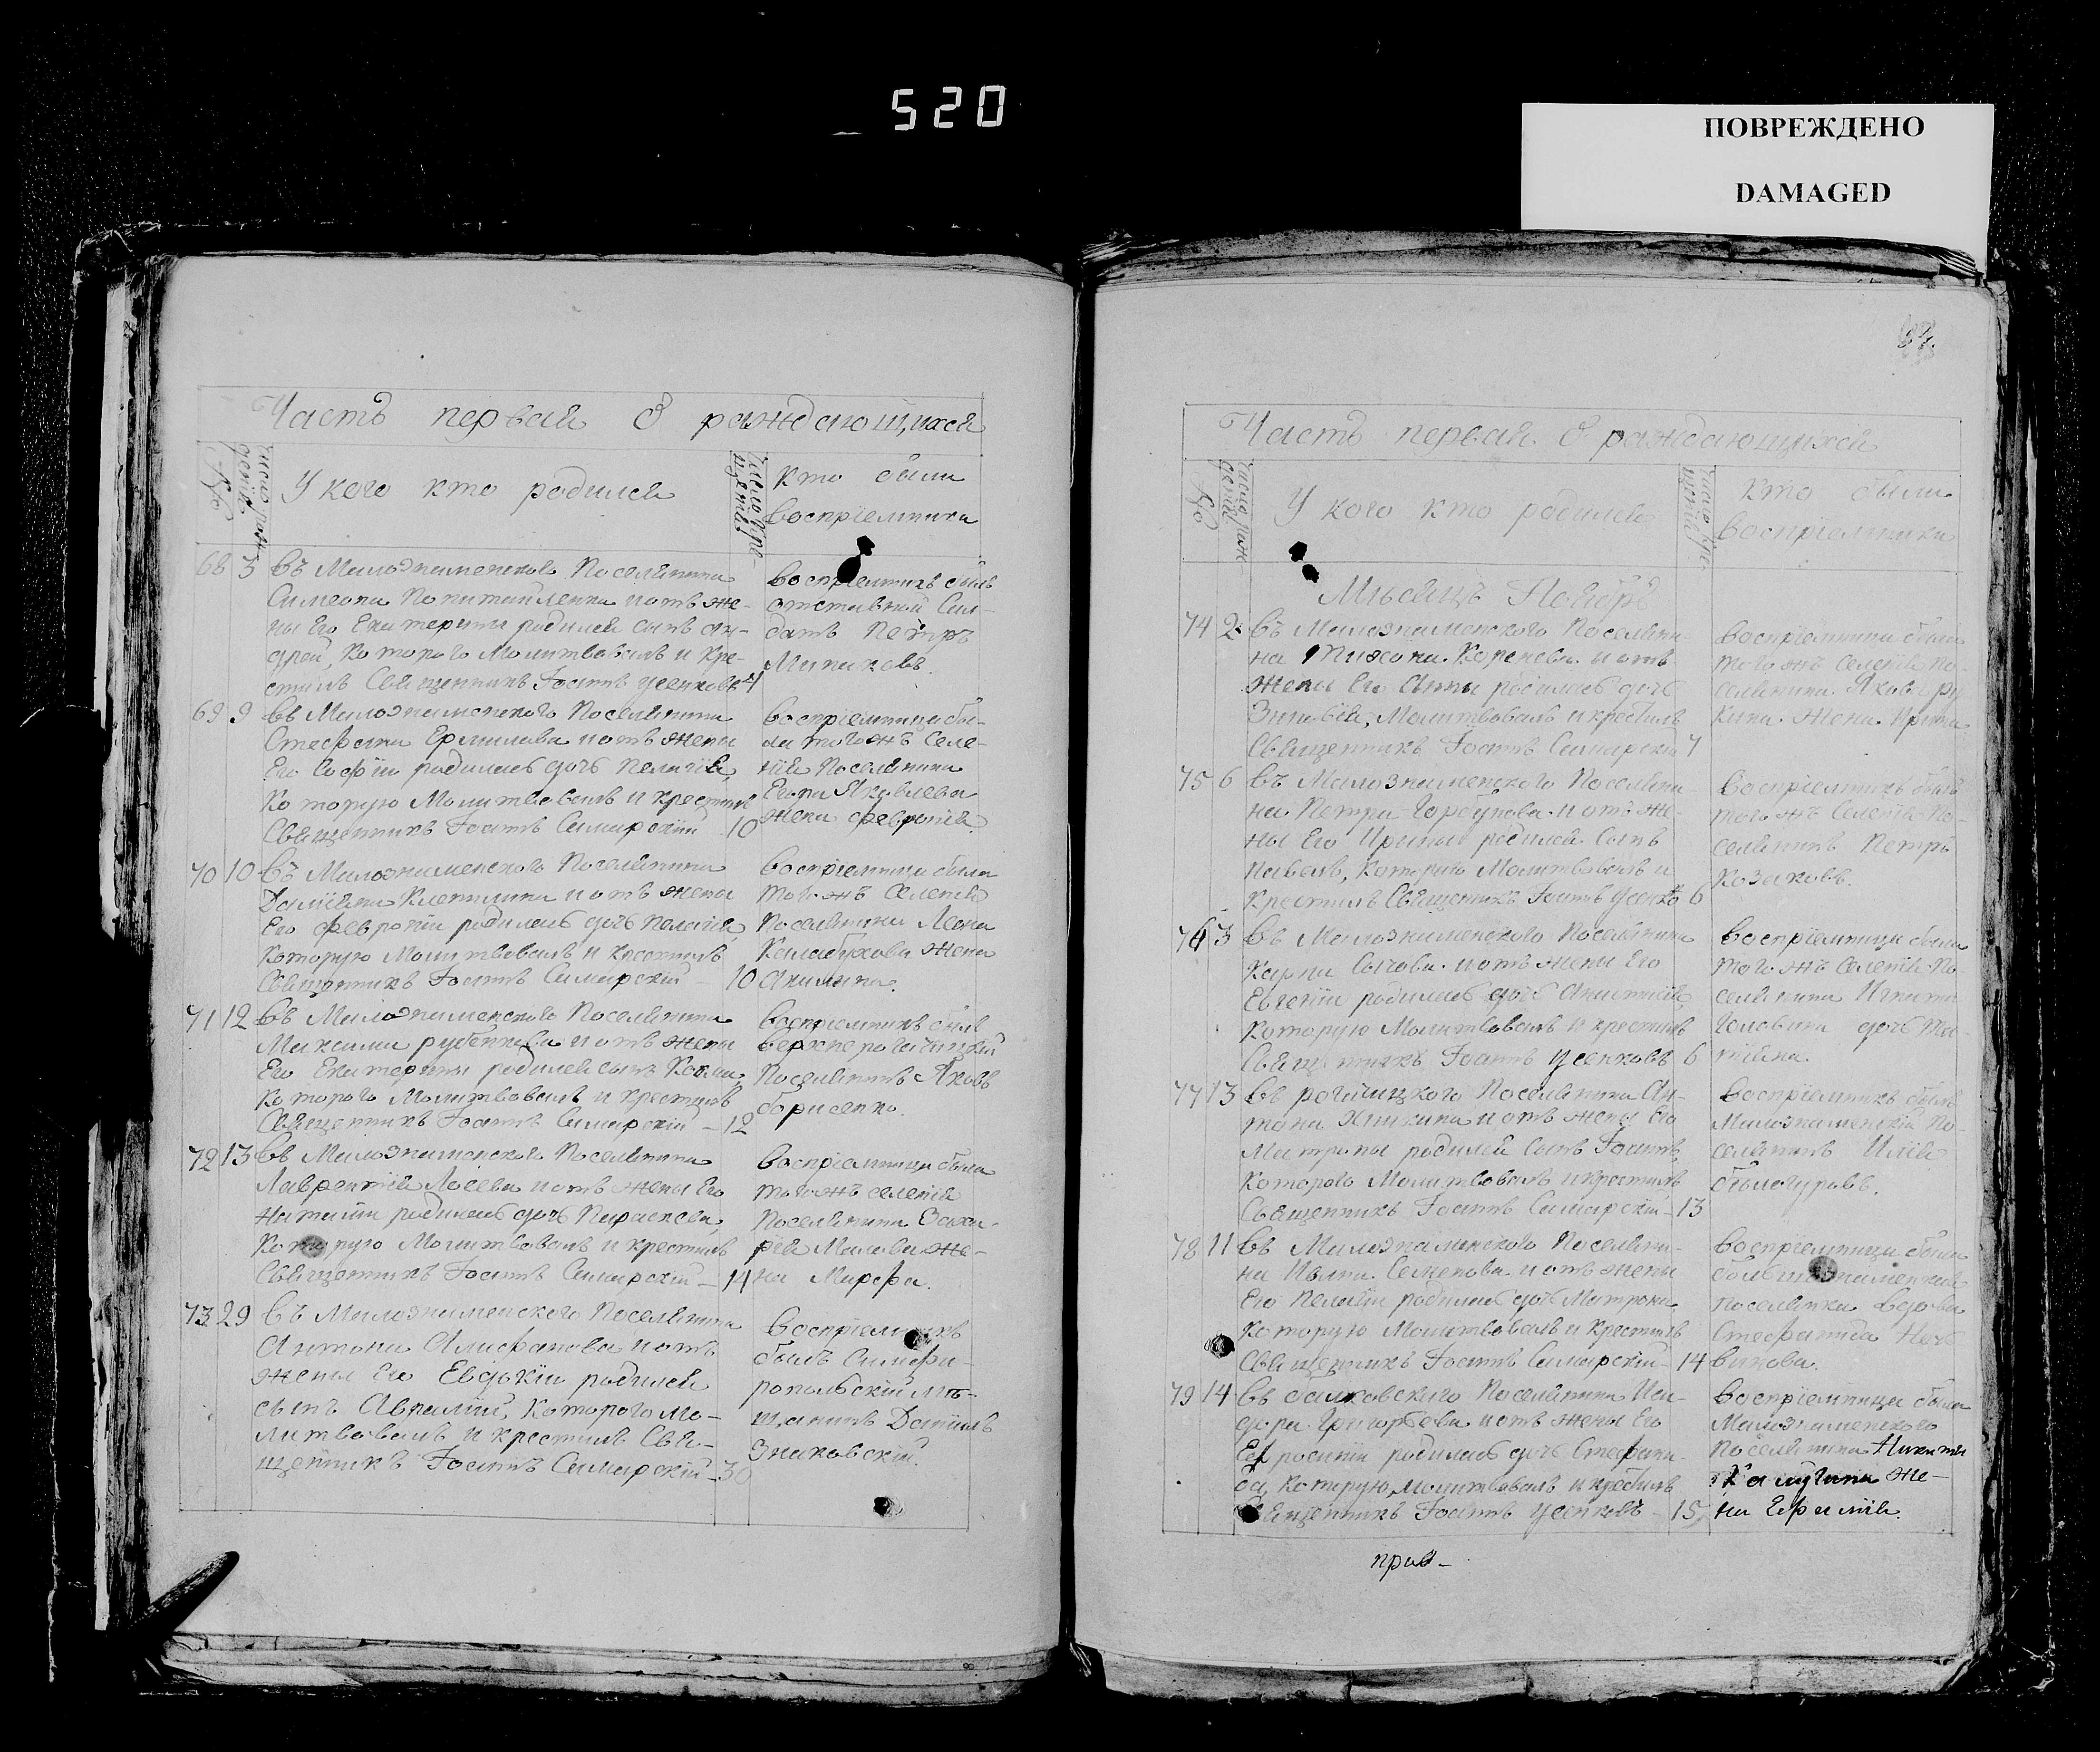 520
ПОВРЕЖДЕНО
DAMAGED
Часть первая О раждающихся
№
число рож-
дения
У кого кто родился
число кре-
щения
Кто были
воспрїемники
68 3 въ Малознаменсков Поселянина
Симеона и отъ же-
ны Его Екатерины родился сынъ Ан-
дрей, Которого Молитвовалъ и Кре-
стилъ Священникъ Іоаннъ Усенковъ 4
воспрїемникъ былъ
отставной Сол-
датъ Петръ
Минаковъ.
69 9 въ Малознаменского Поселянина
Стефана Ермилава и отъ жены
Его Софїи родилась дочь Пелагїя,
Которую Молитвовалъ и крестилъ
Священникъ Іоаннъ Самарскїй 10
воспрїемница бы-
ла того жъ Селе-
нїя Поселянина
Егора Яковлева
жена Февронїя.
70 10 въ Малознаменского Поселянина
Дамїана и отъ жены
Его Февронїи родилась дочь Пелагїя,
Которую Молитвовалъ и крестилъ
Священникъ Іоаннъ Самарскїй 10
воспрїемница была
того жъ Селенїя
Поселянина Леона
Калабухова жена
Акилина.
71 12 въ Малознаменского Поселянина
Максима и отъ жены
Его Екатерины родился сынъ Козма,
Которого Молитвовалъ и крестилъ
Священникъ Іоаннъ Самарскїй 12
воспрїемникъ былъ
верхнерогачицкїй
Поселянинъ Яковъ
борисенко.
72 13 въ Малознаменского Поселянина
Лаврентїя Лосева и отъ жены Его
Наталїи родилась дочь Параскева,
Которую Молитвовалъ и крестилъ
Священникъ Іоаннъ Самарскїй 14
воспрїемница была
того жъ селенїя
Поселянина Заха-
рїя Малова же-
на Марфа.
73 29 въ Малознаменского Поселянина
Антона Алифанова и отъ
жены Его Евдокїи родился
сынъ Авралїй, Которого Мо-
литвовалъ и крестилъ Свя-
щенникъ Іоаннъ Самарскїй 30
воспрїемникъ
былъ Симфи-
ропольскїй мѣ-
щанинъ Данїилъ
Знаковскїй.
Часть первая О раждающихся
№
число рож-
дения
У кого кто родился
число кре-
щения
Кто были
воспрїемники
Мѣсяцъ Ноябрь
74 2 въ Малознаменского Поселяни-
на Тихона Коренева и отъ
жены Его Анны родилась дочь
Зиновїя, Молитвовалъ и крестилъ
Священникъ Іоаннъ Самарскїй 4
воспрїемница была
того жъ Селенїя По-
селянина Якова
жена Ирина
75 6 въ Малознаменского Поселяни-
на Петра Горбунова и отъ же-
ны Его Ирины родился Сынъ
Павелъ, Которого Молитвовалъ и
Крестилъ Священникъ Іоаннъ 6
воспрїемникъ былъ
того жъ Селенїя По-
селянинъ Петръ
Козаковъ.
76 3 въ Малознаменского Поселянина
Карпа Сычова и отъ жены Его
Евгенїи родилась дочь Анастасїя
Которую Молитвовалъ и крестилъ
Священникъ Іоаннъ Усенковъ 6
воспрїемница была
того жъ Селенїя По-
селянина Игната
дочь Та-
тїана.
77 13 въ рогачицкого Поселянина Ан-
тона и отъ жены Его
Матроны родился Сынъ Іоаннъ,
Которого Молитвовалъ и крестилъ
Священникъ Іоаннъ Самарскїй 13
воспрїемникъ былъ
Малознаменскїй По-
селянинъ Илїя
бѣлогуровъ.
78 11 въ Малознаменского Поселяни-
на Семенова и отъ жены
Его Пелагїи родилась дочь Матрона
Которую Молитвовалъ и крестилъ
Священникъ Іоаннъ Самарскїй 14
воспрїемница была
Поселянка Вдова
Стефанида
79 14 въ балковского Поселянина Иси-
дора Григорьева и отъ жены Его
родилась дочь Стефани-
да, Которую Молитвовалъ и крестилъ
Священникъ Іоаннъ Усенковъ 15
воспрїемница была
Малознаменского
Поселянина Никиты
Калугина же-
на Ефимїя.
прав-